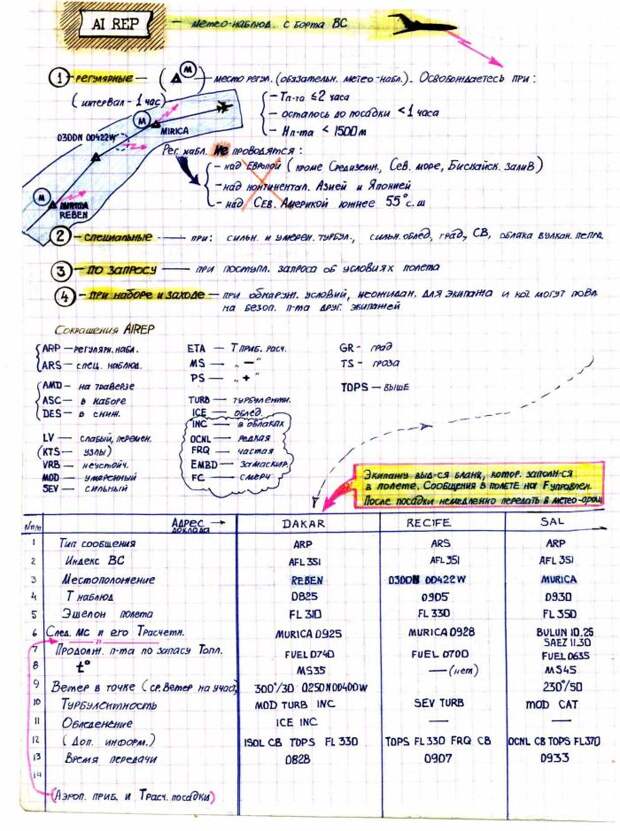 AI REP
МЕТЕО-НАБЛЮД. С БОРТА ВС
① РЕГУЛЯРНЫЕ — ( М ) — МЕСТО РЕГУЛ. (ОБЯЗАТЕЛЬН. МЕТЕО-НАБЛ). ОСВОБОЖДАЕТЕСЬ ПРИ:
(ИНТЕРВАЛ - 1 ЧАС)
— Тп-та ≤ 2 ЧАСА
— ОСТАЛОСЬ ДО ПОСАДКИ < 1 ЧАСА
— Нп-та < 1500 м
М
MIRICA
0300N 00422W
М
REBEN
РЕГ. НАБЛ. НЕ ПРОВОДЯТСЯ:
— НАД ЕВРОПОЙ (КРОМЕ СРЕДИЗЕМН., СЕВ. МОРЕ, БИСКАЙСК. ЗАЛИВ)
— НАД КОНТИНЕНТАЛ. АЗИЕЙ И ЯПОНИЕЙ
— НАД СЕВ. АМЕРИКОЙ ЮЖНЕЕ 55° С.Ш
② — СПЕЦИАЛЬНЫЕ — ПРИ: СИЛЬН. И УМЕРЕН. ТУРБУЛ., СИЛЬН. ОБЛЕД, ГРАД, СВ, ОБЛАКА ВУЛКАН. ПЕПЛА
③ — ПО ЗАПРОСУ — ПРИ ПОСТУПЛ. ЗАПРОСА ОБ УСЛОВИЯХ ПОЛЕТА
④ — ПРИ НАБОРЕ И ЗАХОДЕ — ПРИ ОБНАРУЖ. УСЛОВИЙ, НЕОЖИДАН. ДЛЯ ЭКИПАЖА И КОТ. МОГУТ ПОВЛ.
НА БЕЗОП. П-ТА ДРУГ. ЭКИПАЖЕЙ
СОКРАЩЕНИЯ AIREP
ARP — РЕГУЛЯРН. НАБЛ.
ARS — СПЕЦ. НАБЛЮД.
AMD — НА ТРАВЕРЗЕ
ASC — В НАБОРЕ
DES — В СНИЖ.
LV — СЛАБЫЙ, ПЕРЕМЕН.
(KTS — УЗЛЫ)
VRB — НЕУСТОЙЧ.
MOD — УМЕРЕННЫЙ
SEV — СИЛЬНЫЙ
ETA — Т ПРИБ. РАСЧ.
MS — „ — "
PS — „ + "
TURB — ТУРБУЛЕНТН.
ICE — ОБЛЕД.
INC — В ОБЛАКАХ
OCNL — РЕДКАЯ
FRQ — ЧАСТАЯ
EMBD — ЗАМАСКИР.
FC — СМЕРЧ
GR — ГРАД
TS — ГРОЗА
TOPS — ВЫШЕ
ЭКИПАЖУ ВЫД-СЯ БЛАНК, КОТОР. ЗАПОЛН-СЯ
В ПОЛЕТЕ. СООБЩЕНИЯ В ПОЛЕТЕ НА F УПРАВЛЕН.
ПОСЛЕ ПОСАДКИ НЕМЕДЛЕННО ПЕРЕДАТЬ В МЕТЕО-ОРГАН
№п/п АДРЕС ДОКЛАДА DAKAR RECIFE SAL
1 ТИП СООБЩЕНИЯ ARP ARS ARP
2 ИНДЕКС ВС AFL 351 AFL 351 AFL 351
3 МЕСТОПОЛОЖЕНИЕ REBEN 0300N 00422W MURICA
4 Т НАБЛЮД 0825 0905 0930
5 ЭШЕЛОН ПОЛЕТА FL 310 FL 330 FL 350
6 СЛЕД. МС И ЕГО ТРАСЧЕТН. MURICA 0925 MURICA 0928 BULUN 10.25
SAEZ 11.30
7 ПРОДОЛЖ. П-ТА ПО ЗАПАСУ ТОПЛ. FUEL 0740 FUEL 0700 FUEL 0635
8 t° MS35 — (НЕТ) MS45
9 ВЕТЕР В ТОЧКЕ (СР. ВЕТЕР НА УЧАС) 300°/30 0250N00400W 230°/50
10 ТУРБУЛЕНТНОСТЬ MOD TURB INC SEV TURB MOD CAT
11 ОБЛЕДЕНЕНИЕ ICE INC — —
12 (ДОП. ИНФОРМ.) ISOL CB TOPS FL 330 TOPS FL 330 FRQ CB OCNL CB TOPS FL370
13 ВРЕМЯ ПЕРЕДАЧИ 0828 0907 0933
14
(АЭРОП. ПРИБ. И ТРАСЧ. ПОСАДКИ)